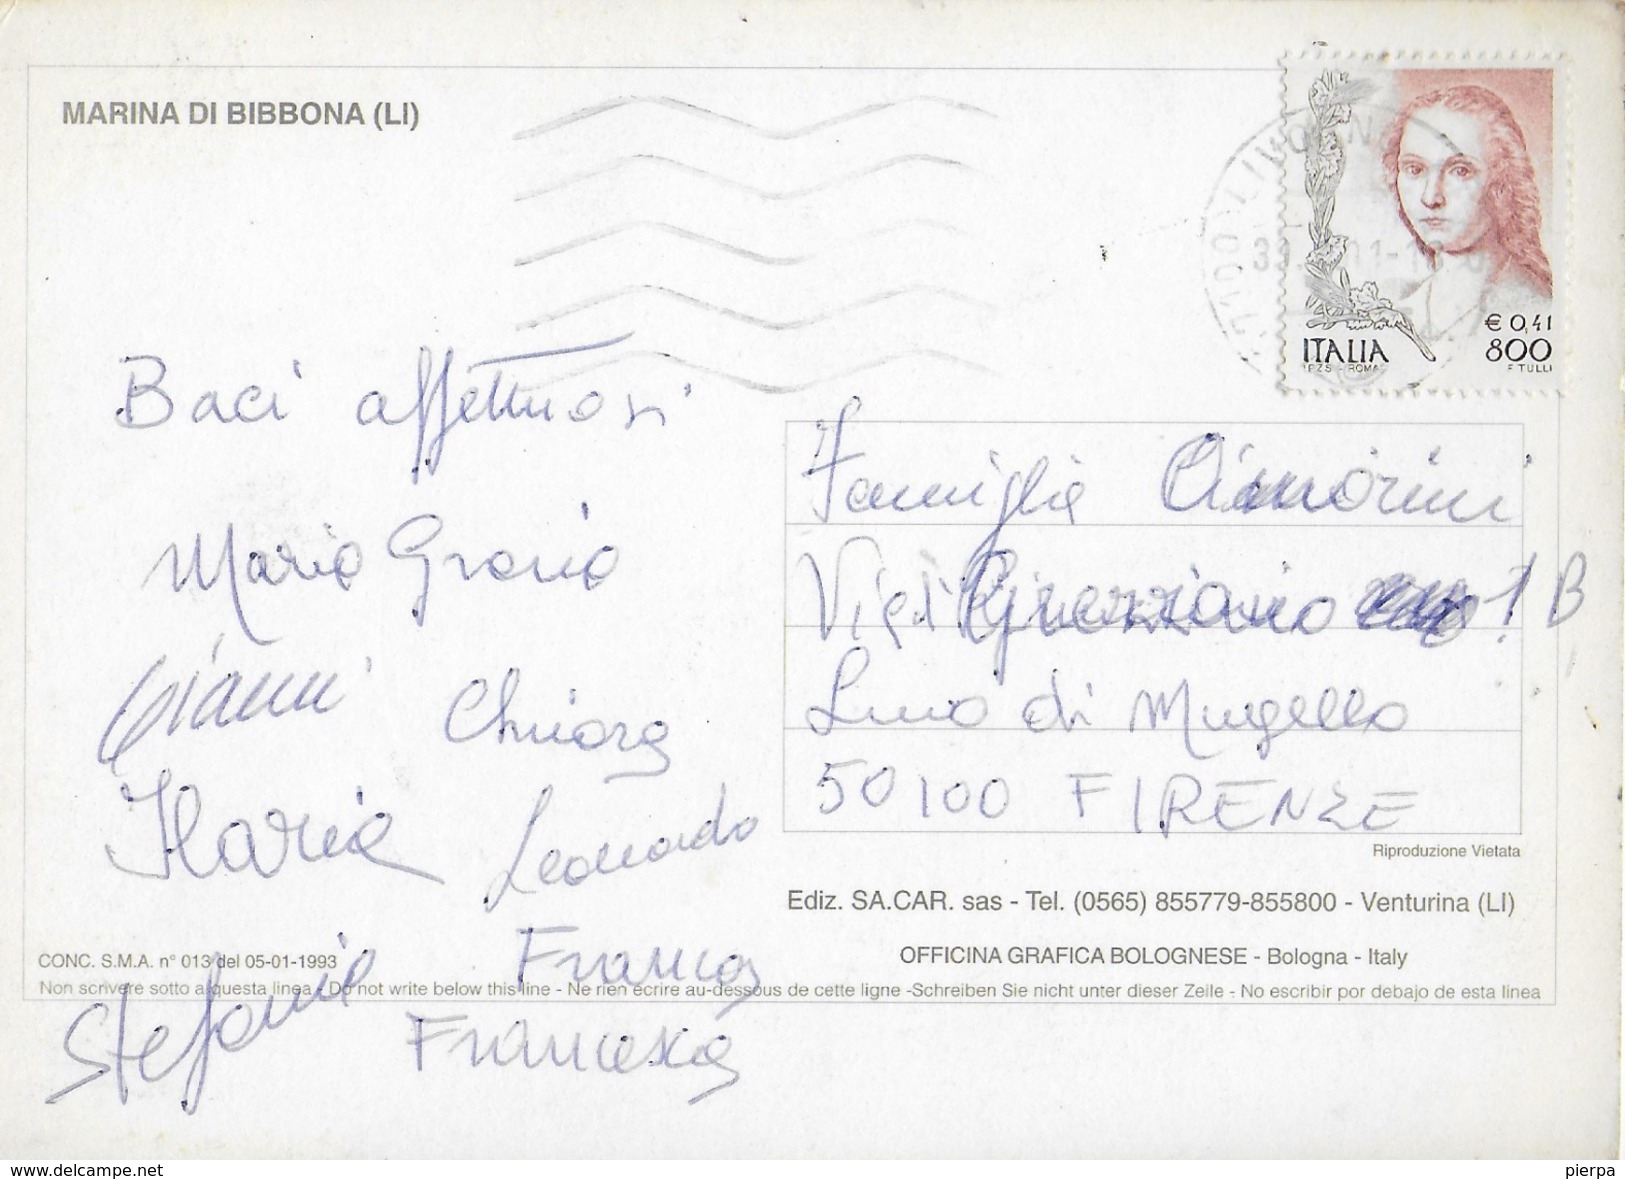 MARINA DI BIBBONA (LI)
€ 0,41
ITALIA 800
I.P.Z.S. - ROMA F. TULLI
Baci affettuosi
Maria Grazia
Gianni Chiara
Ilaria Leonardo
Stefania Franca
Francesca
Famiglia
1 B
Luco di Mugello
50100 FIRENZE
Riproduzione Vietata
Ediz. SA.CAR. sas - Tel. (0565) 855779-855800 - Venturina (LI)
CONC. S.M.A. n° 013 del 05-01-1993
OFFICINA GRAFICA BOLOGNESE - Bologna - Italy
Non scrivere sotto a questa linea - Do not write below this line - Ne rien écrire au-dessous de cette ligne -Schreiben Sie nicht unter dieser Zeile - No escribir por debajo de esta linea
www.delcampe.net
pierpa